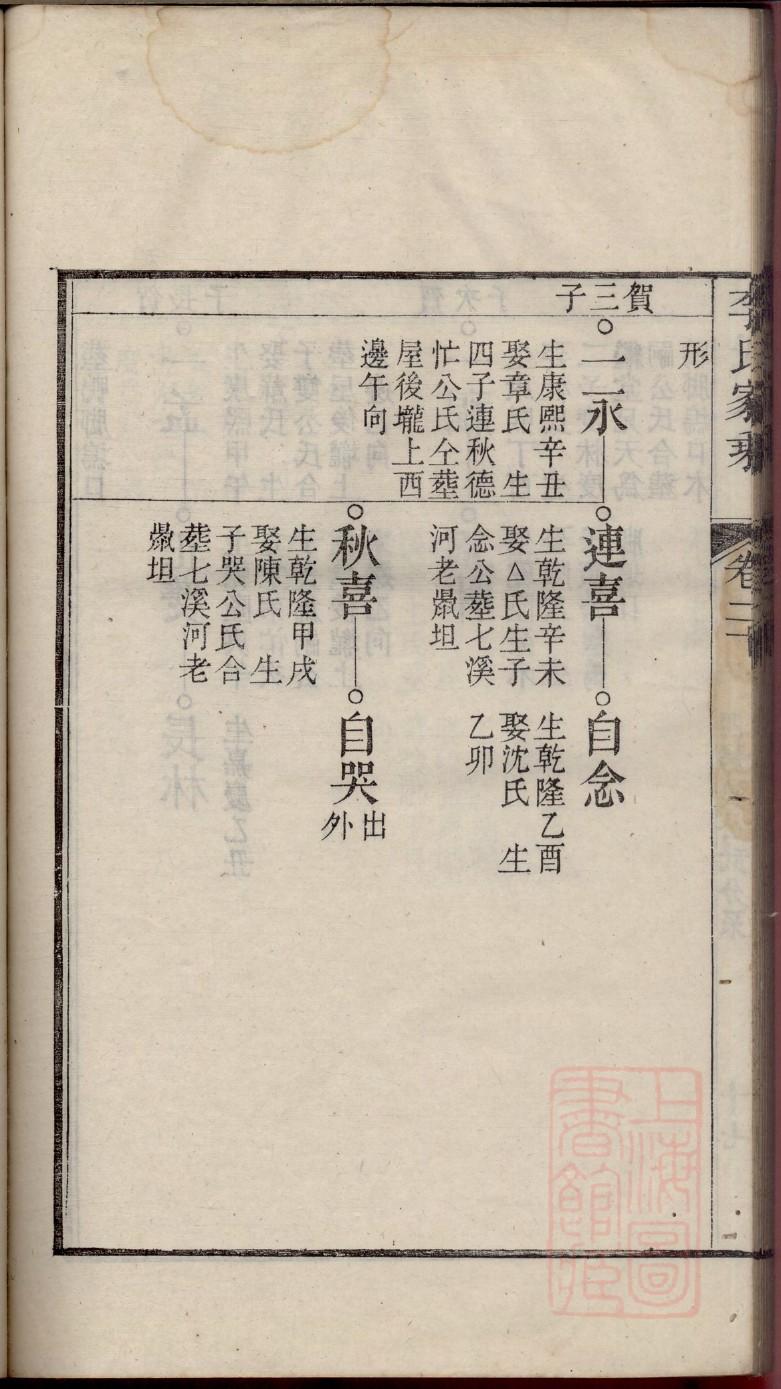 李氏家乘
卷二
形
賀三子
一二永
生康熙辛丑
娶章氏 生
四子連秋德
忙公氏仝塟
屋後壠上西
邊午向
連喜
生乾隆辛未
娶△氏生子
念公塟七溪
河老鼡坦
自念
生乾隆乙酉
娶沈氏 生
乙卯
秋喜
生乾隆甲戌
娶陳氏 生
子哭公氏合
塟七溪河老
鼡坦
自哭
出
外
上海圖
書館藏